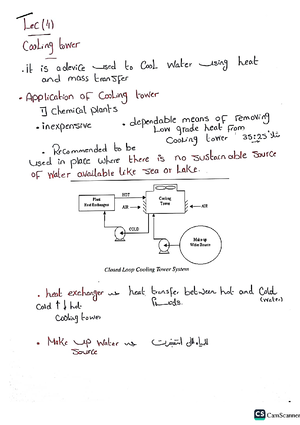 Lec(4)
Cooling tower
• it is a device used to Cool water using heat
and mass transfer
• Application of Cooling tower
1] Chemical plants
• inexpensive
• dependable means of removing
Low grade heat from
Cooling tower 35:25
• Recommended to be
Used in place where there is no sustainable source
of water available like sea or Lake.
HOT
Plant
Heat Exchanger
Cooling
Tower
AIR
AIR
COLD
Make-up
Water Source
Closed Loop Cooling Tower System
• heat exchanger heat transfer between hot and Cold
Cold ↑↓ hot
(water)
Cooling tower
• Make up water
Source
CS CamScanner